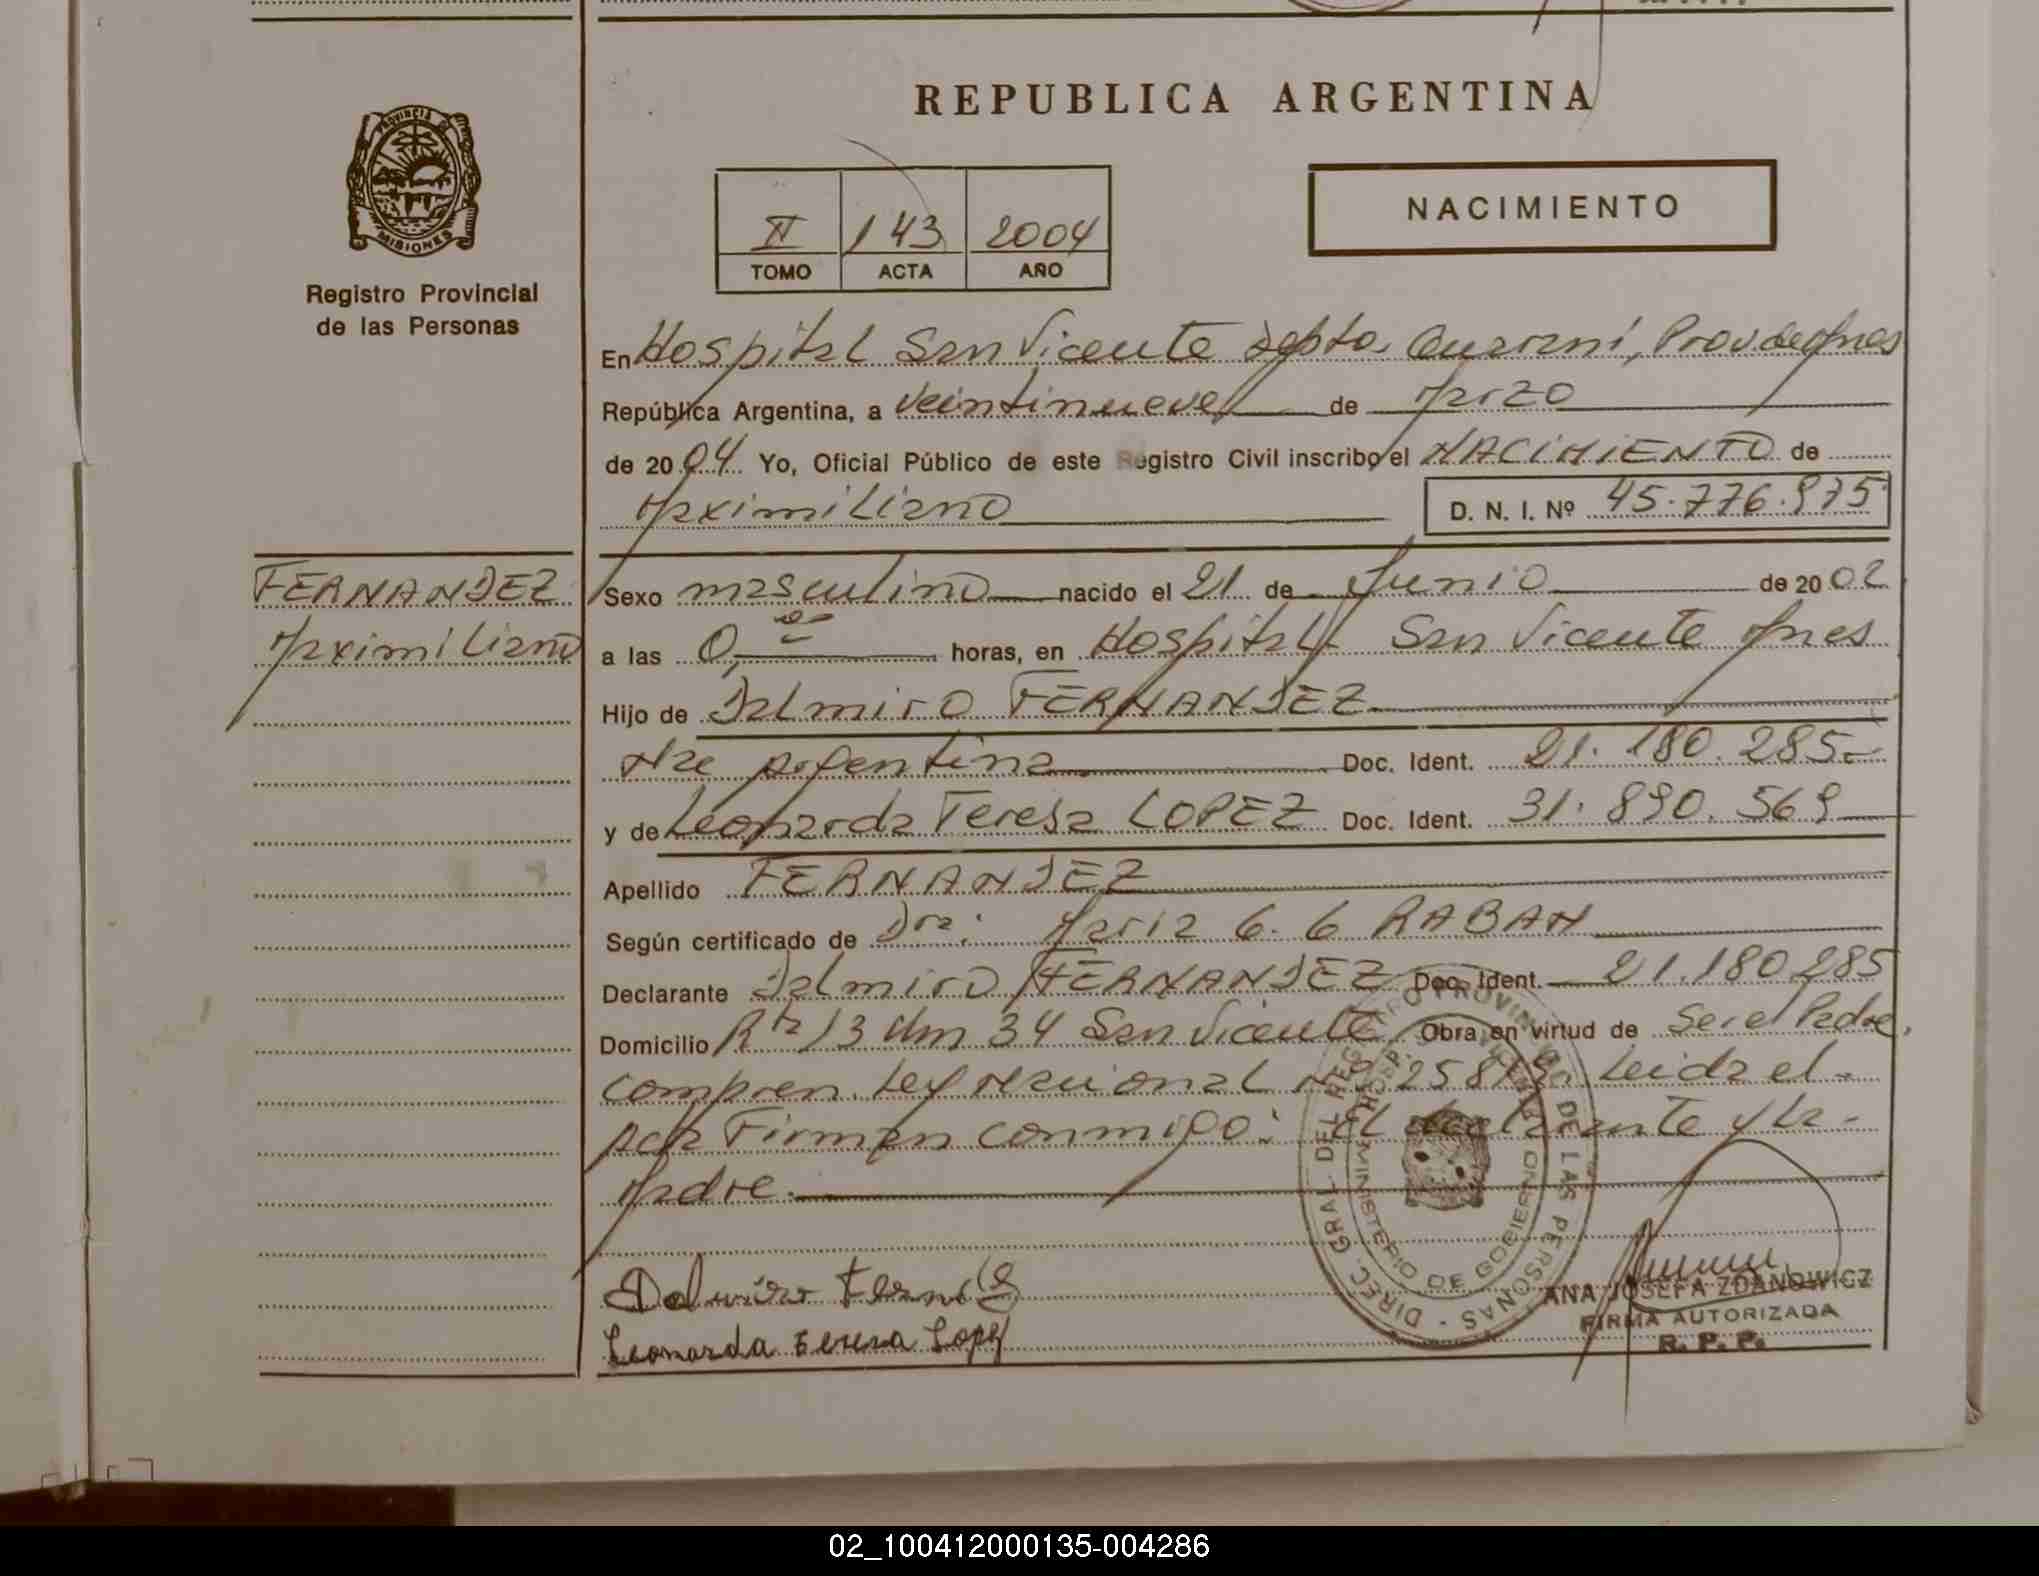 REPUBLICA ARGENTINA
PROVINCIA DE MISIONES
Registro Provincial
de las Personas
II 143 2004
TOMO ACTA AÑO
NACIMIENTO
En Hospital San Vicente Depto Guaraní, Prov de Mnes
República Argentina, a veintinueve de Marzo
de 2004 Yo, Oficial Público de este Registro Civil inscribo el NACIMIENTO de
Maximiliano D. N. I. Nº 45.776.975
FERNANDEZ
Maximiliano
Sexo masculino nacido el 21 de Junio de 2002
a las 0,00 horas, en Hospital San Vicente Mnes
Hijo de Dalmiro FERNANDEZ
Nac argentina Doc. Ident. 21.180.285
y de Leonarda Teresa LOPEZ Doc. Ident. 31.890.569
Apellido FERNANDEZ
Según certificado de Dra: Maria G. G RABAN
Declarante Dalmiro FERNANDEZ Doc. Ident. 21.180.285
Domicilio Rta 13 Km 34 San Vicente Obra en virtud de Ser el Padre,
compren. Ley nacional nº 25819. Leida el
Acta Firman conmigo: el declarante y la
Madre.
DIREC. GRAL. DEL REGISTRO PROVINCIAL DE LAS PERSONAS
MINISTERIO DE GOBIERNO
HOSP. VICENTE
Dalmiro Fernandez
Leonarda teresa Lopez
ANA JOSEFA ZDANOWICZ
FIRMA AUTORIZADA
R. P. P.
02_100412000135-004286